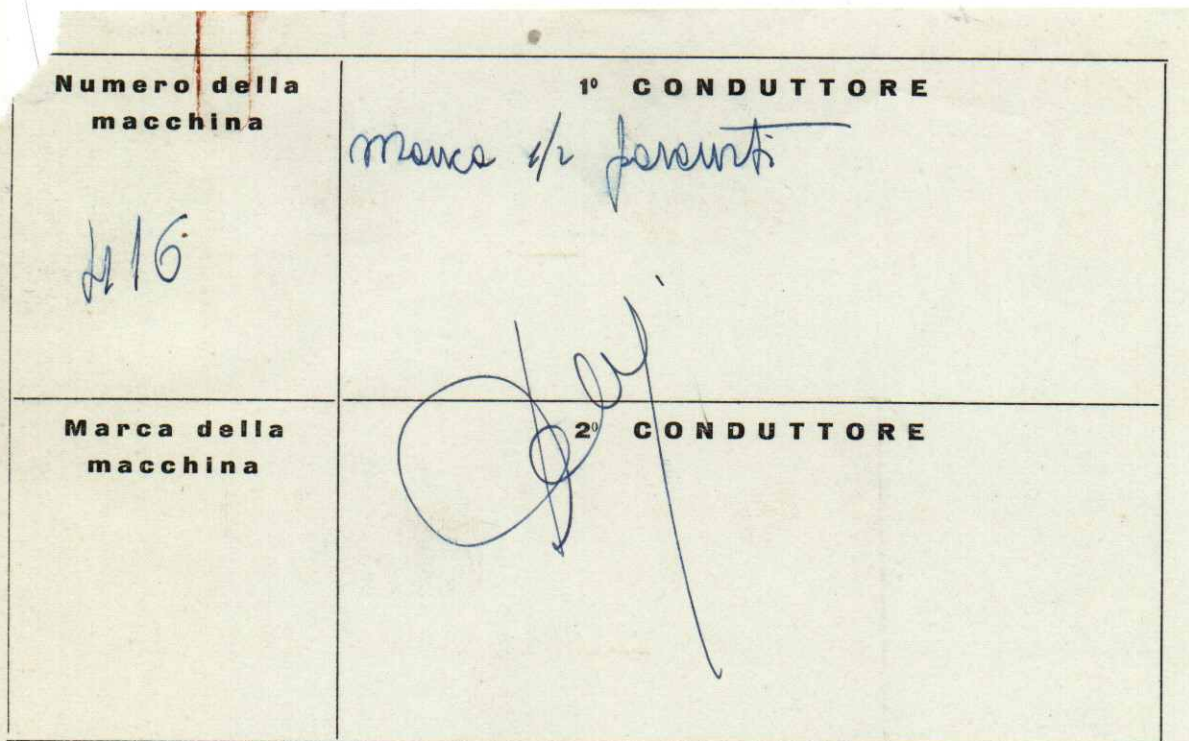 Numero della
macchina
416
1º CONDUTTORE
Manca 1/2 paraurti
Marca della
macchina
2º CONDUTTORE